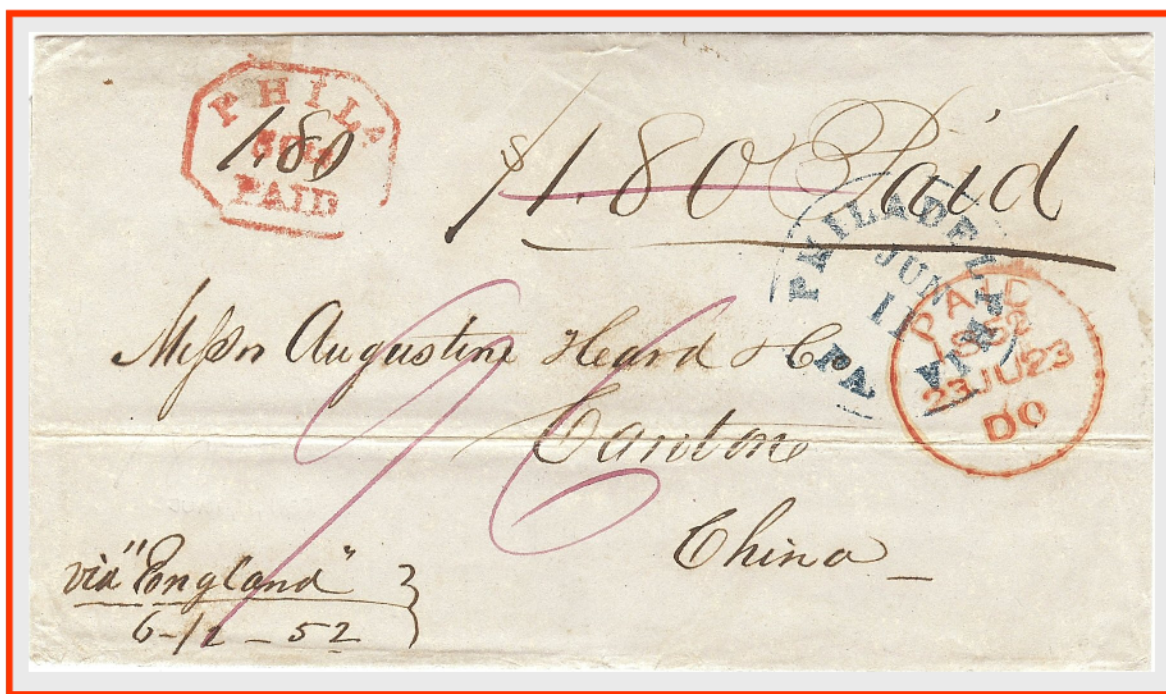 PHILA
PAID
1.80
$1.80 Paid
PHILADELPHIA
JUN
11
PA.
PAID
1852
23JU23
DO
Messrs Augustine Heard & Co
Canton
China
96
via "England"
6-12-52